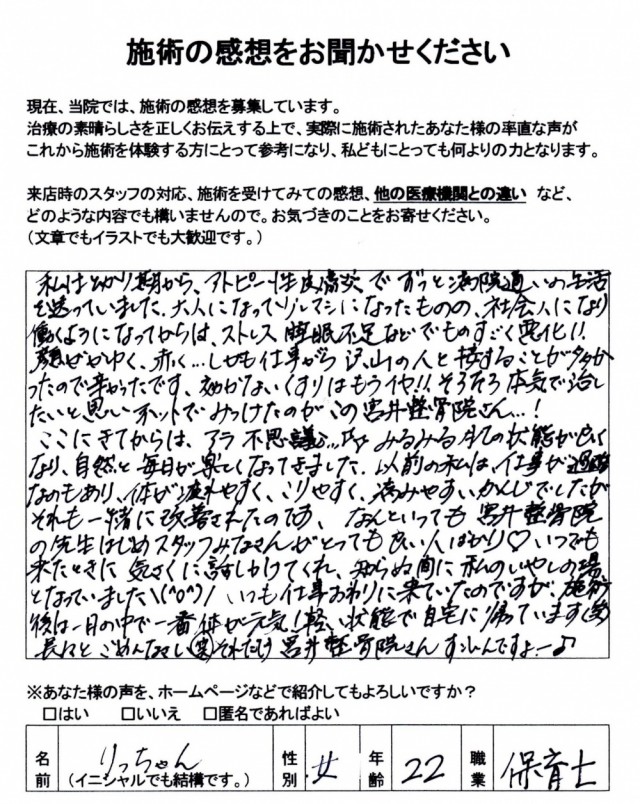 施術の感想をお聞かせください
現在、当院では、施術の感想を募集しています。
治療の素晴らしさを正しくお伝えする上で、実際に施術されたあなた様の率直な声が
これから施術を体験する方にとって参考になり、私どもにとっても何よりの力となります。
来店時のスタッフの対応、施術を受けてみての感想、他の医療機関との違い など、
どのような内容でも構いませんので。お気づきのことをお寄せください。
(文章でもイラストでも大歓迎です。)
私は 期から、アトピー性皮膚炎で ずっと病院通いの生活
を送っていました。大人になって少しマシになったものの、社会人になり
働くようになってからは、ストレス 睡眠不足などでものすごく悪化!!
顔がかゆく、赤く…しかも仕事がら 沢山の人と接することが多か
ったので辛かったです。効かないくすりはもうイヤ!! そろそろ本気で治し
たいと思いネットでみつけたのがこの宮井整骨院さん…!
ここにきてからは、アラ不思議… みるみる肌の状態が良く
なり、自然と毎日が楽しくなってきました。以前の私は、仕事が
なのもあり、体が疲れやすく、こりやすく、痛みやすいかんじでしたが
それも一緒に改善されたのです。なんといっても 宮井整骨院
の先生はじめスタッフみなさんがとっても良い人ばかり♡いつでも
来たときに 気さくに話しかけてくれ、知らぬ間に私のいやしの場
となっていました\(^o^)/ いつも仕事おわりに来ていたのですが、施術
後は一日の中で一番体が元気!軽い状態で自宅に帰っています(笑)
長々とごめんなさい(笑)それだけ 宮井整骨院さん すごいんですよー♪
※あなた様の声を、ホームページなどで紹介してもよろしいですか?
□はい □いいえ □匿名であればよい
名前 りっちゃん 性別 女 年齢 22 職業 保育士
(イニシャルでも結構です。)